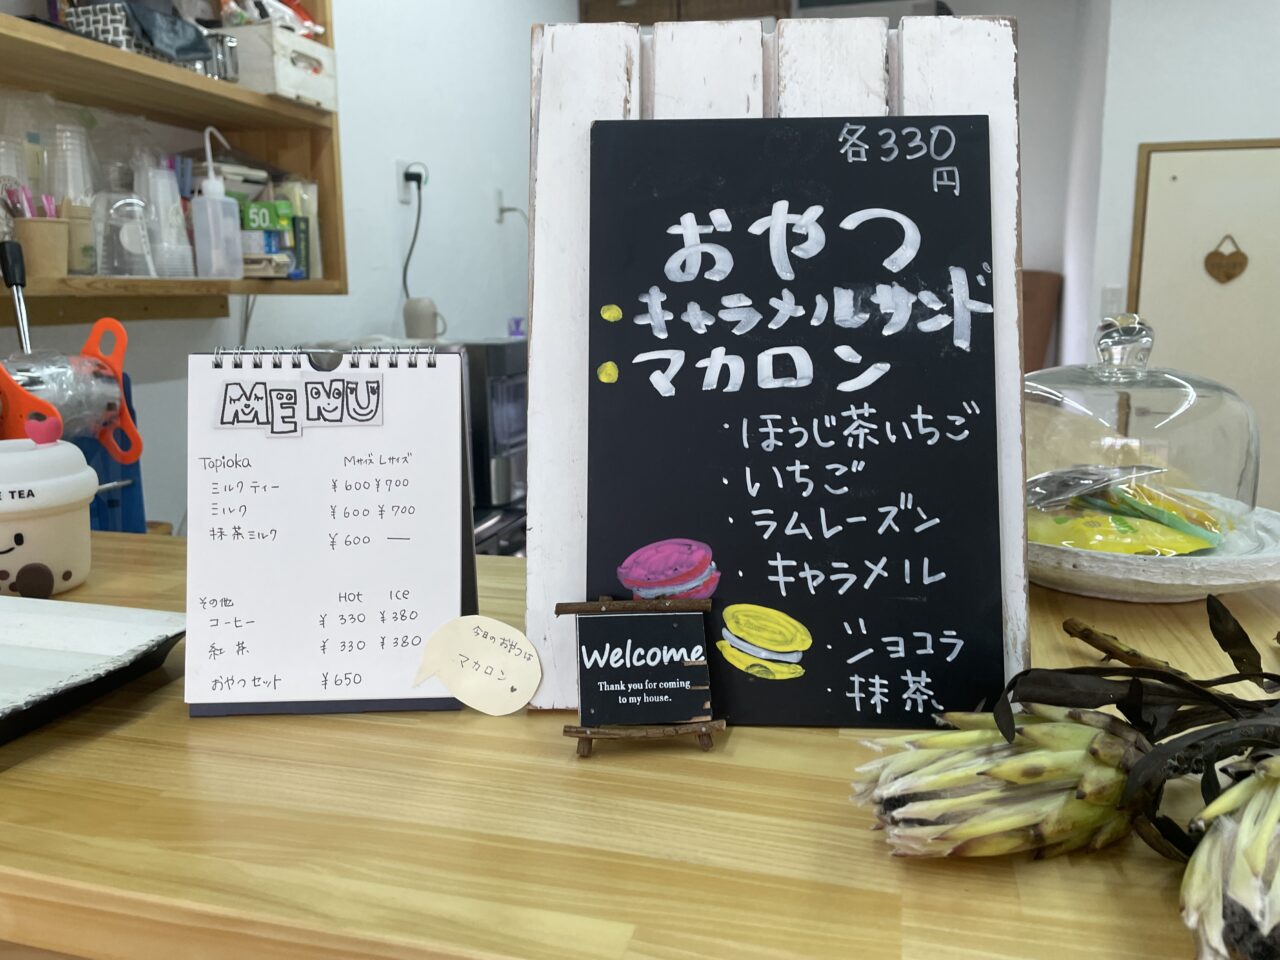 MENU
Tapioka Mサイズ Lサイズ
ミルクティー ¥600 ¥700
ミルク ¥600 ¥700
抹茶ミルク ¥600 —
その他 Hot Ice
コーヒー ¥330 ¥380
紅茶 ¥330 ¥380
おやつセット ¥650
今日のおやつは
マカロン
各330
円
おやつ
キャラメルサンド
マカロン
・ほうじ茶いちご
・いちご
・ラムレーズン
・キャラメル
・ショコラ
・抹茶
Welcome
Thank you for coming
to my house.
TEA
50